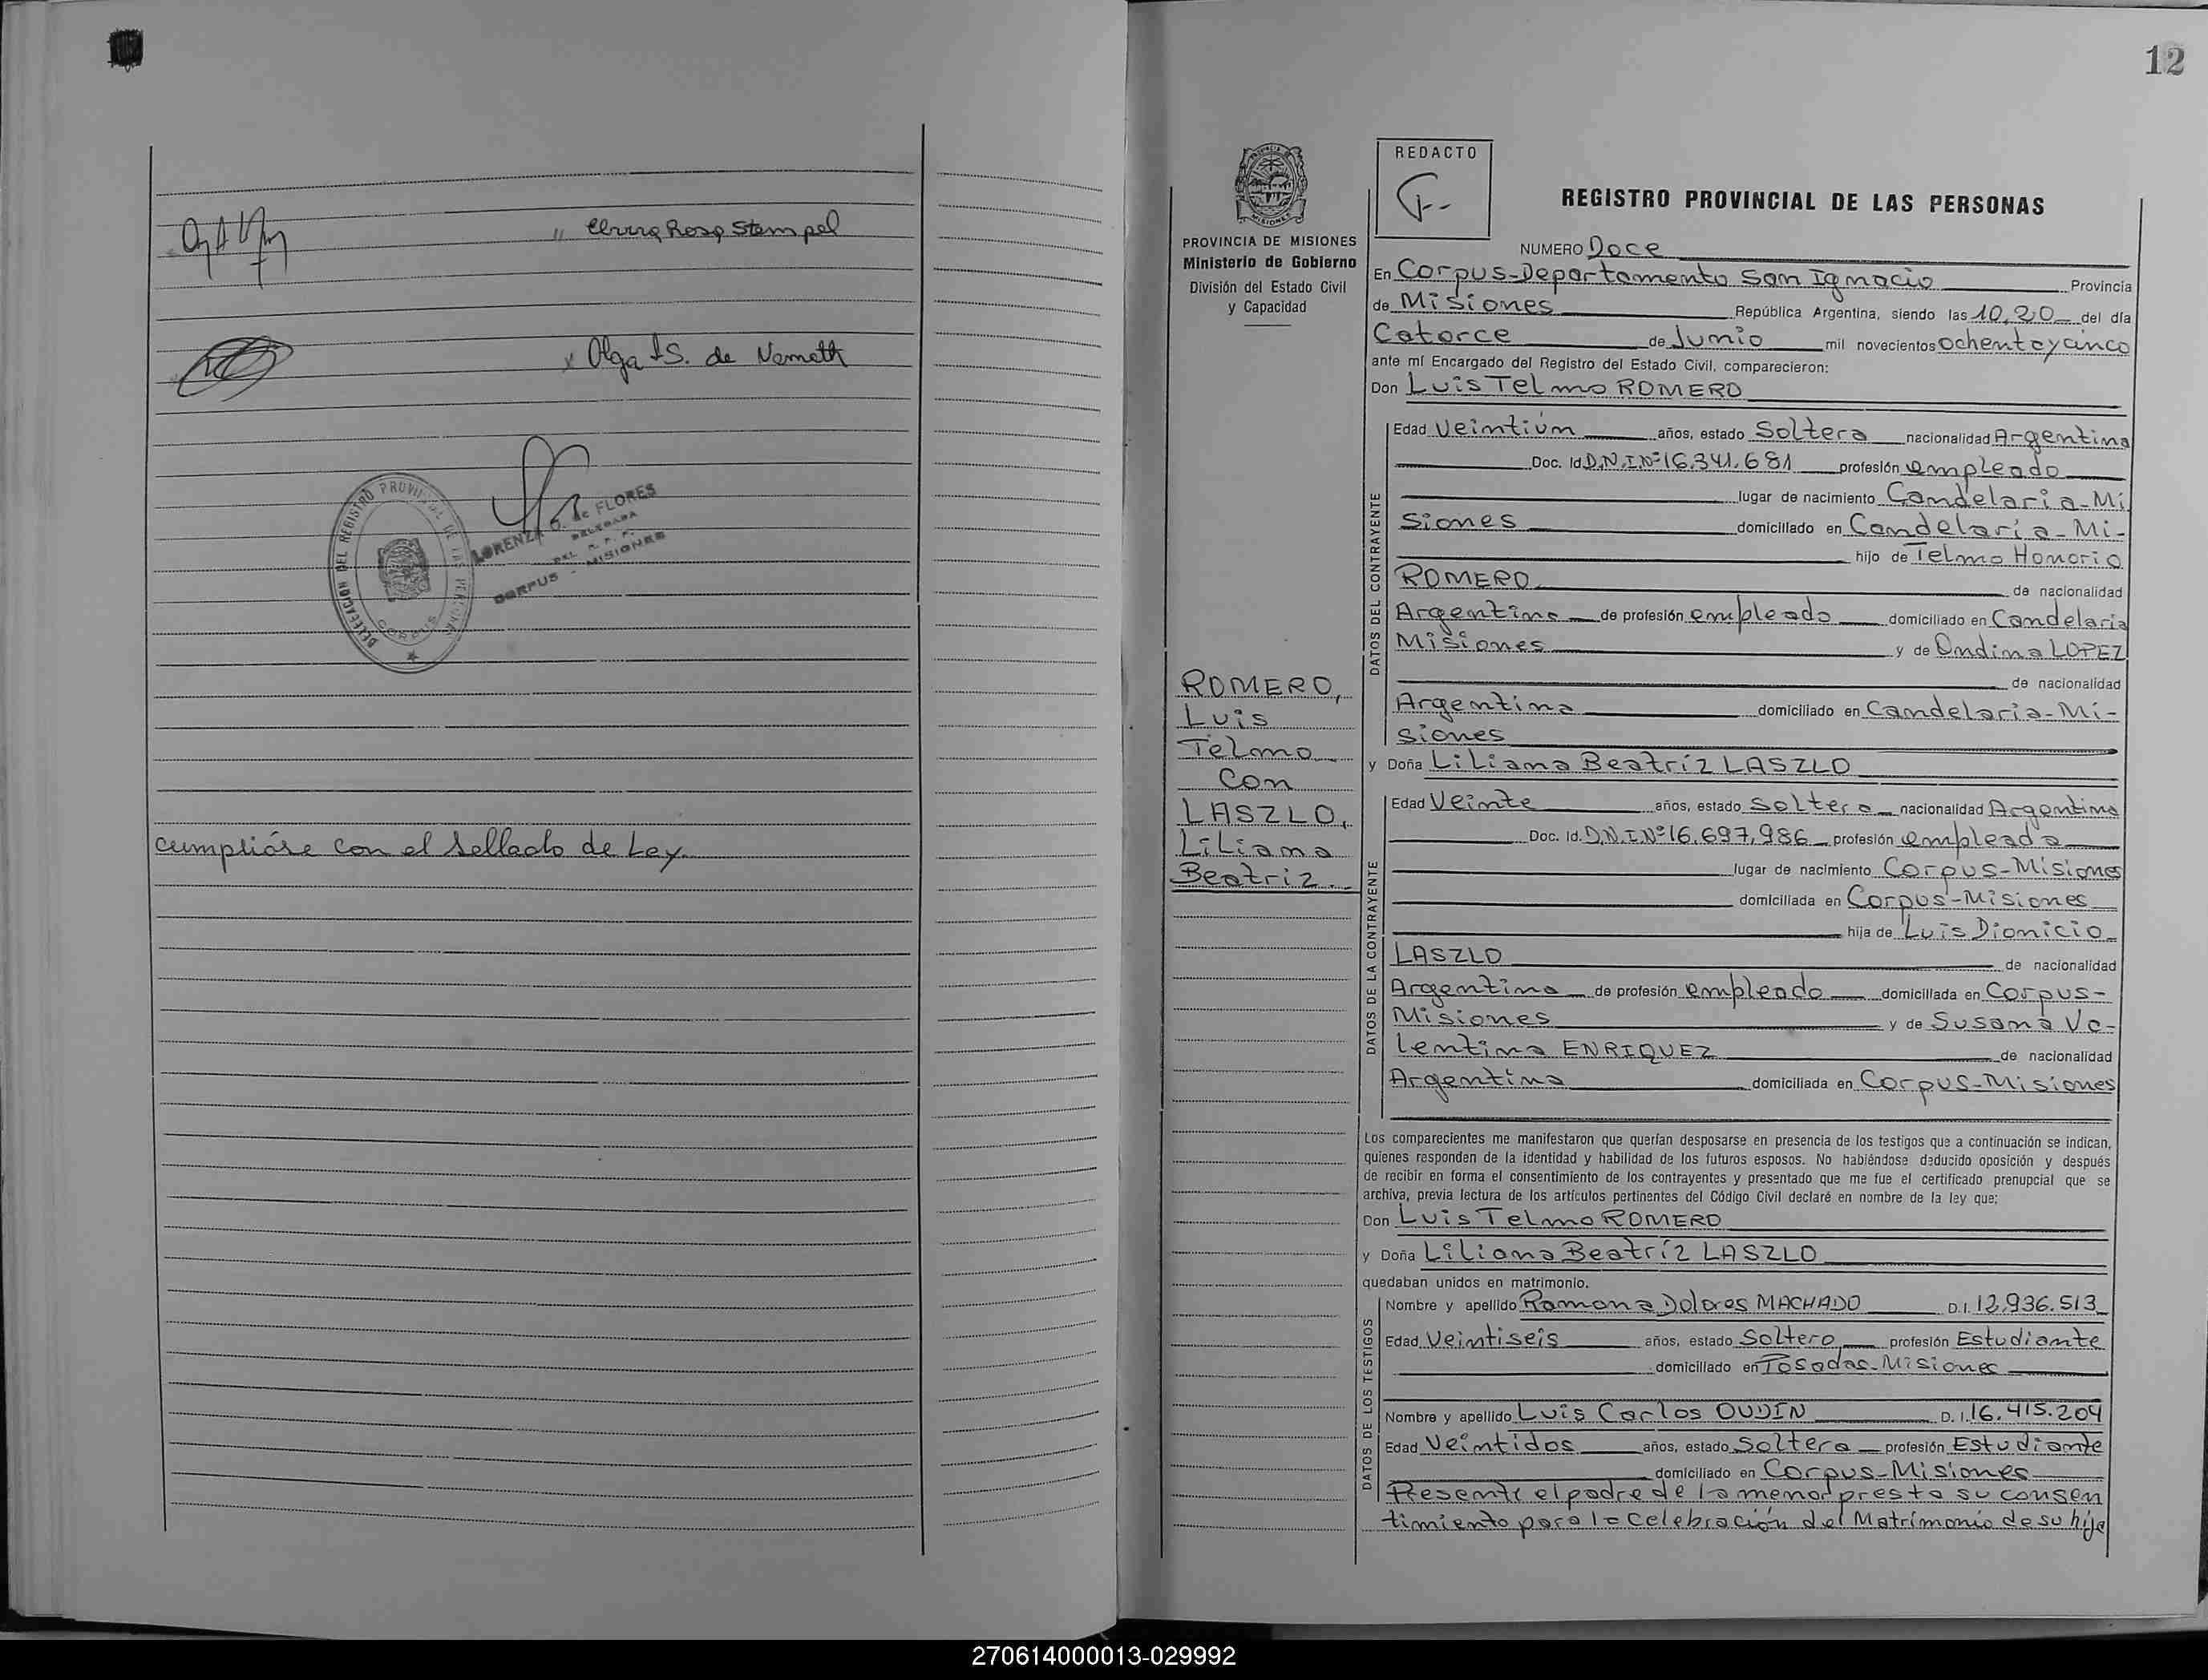 Elvira Rosa Stempel
Olga S. de Nemeth
DELEGACION DEL REGISTRO PROVINCIAL DE LAS PERSONAS
CORPUS
LORENZA G. de FLORES
DELEGADA
DEL R. P. P.
CORPUS - MISIONES
Cumplióse con el sellado de Ley.
12
PROVINCIA DE MISIONES
Ministerio de Gobierno
División del Estado Civil
y Capacidad
ROMERO,
Luis
Telmo
Con
LASZLO,
Liliana
Beatriz.
REDACTO
REGISTRO PROVINCIAL DE LAS PERSONAS
NUMERO Doce
En Corpus-Departamento San Ignacio Provincia
de Misiones República Argentina, siendo las 10,20 del día
Catorce de Junio mil novecientos ochentaycinco
ante mí Encargado del Registro del Estado Civil, comparecieron:
Don Luis Telmo ROMERO
DATOS DEL CONTRAYENTE
Edad Veintiún años, estado Soltero nacionalidad Argentina
Doc. Id D.N.I.Nº 16.341.681 profesión empleado
lugar de nacimiento Candelaria-Mi
siones domiciliado en Candelaria-Mi-
hijo de Telmo Honorio
ROMERO de nacionalidad
Argentina de profesión empleado domiciliado en Candelaria
Misiones y de Ondina LOPEZ
de nacionalidad
Argentina domiciliado en Candelaria-Mi-
siones
y Doña Liliana Beatríz LASZLO
DATOS DE LA CONTRAYENTE
Edad Veinte años, estado Soltera nacionalidad Argentina
Doc. Id. D.N.I.Nº 16.697.986 profesión empleada
lugar de nacimiento Corpus-Misiones
domiciliada en Corpus-Misiones
hija de Luis Dionicio
LASZLO de nacionalidad
Argentina de profesión empleado domiciliada en Corpus-
Misiones y de Susana Va-
lentina ENRIQUEZ de nacionalidad
Argentina domiciliada en Corpus-Misiones
Los comparecientes me manifestaron que querían desposarse en presencia de los testigos que a continuación se indican,
quienes responden de la identidad y habilidad de los futuros esposos. No habiéndose deducido oposición y después
de recibir en forma el consentimiento de los contrayentes y presentado que me fue el certificado prenupcial que se
archiva, previa lectura de los artículos pertinentes del Código Civil declaré en nombre de la ley que:
Don Luis Telmo ROMERO
y Doña Liliana Beatríz LASZLO
quedaban unidos en matrimonio.
DATOS DE LOS TESTIGOS
Nombre y apellido Ramona Dolores MACHADO D.I. 12.936.513
Edad Veintiseis años, estado Soltero profesión Estudiante
domiciliado en Posadas-Misiones
Nombre y apellido Luis Carlos OUDIN D.I. 16.415.204
Edad Veintidos años, estado Soltera profesión Estudiante
domiciliado en Corpus-Misiones
Presente el padre de la menor presta su consen
timiento para la celebración del Matrimonio de su hija
270614000013-029992